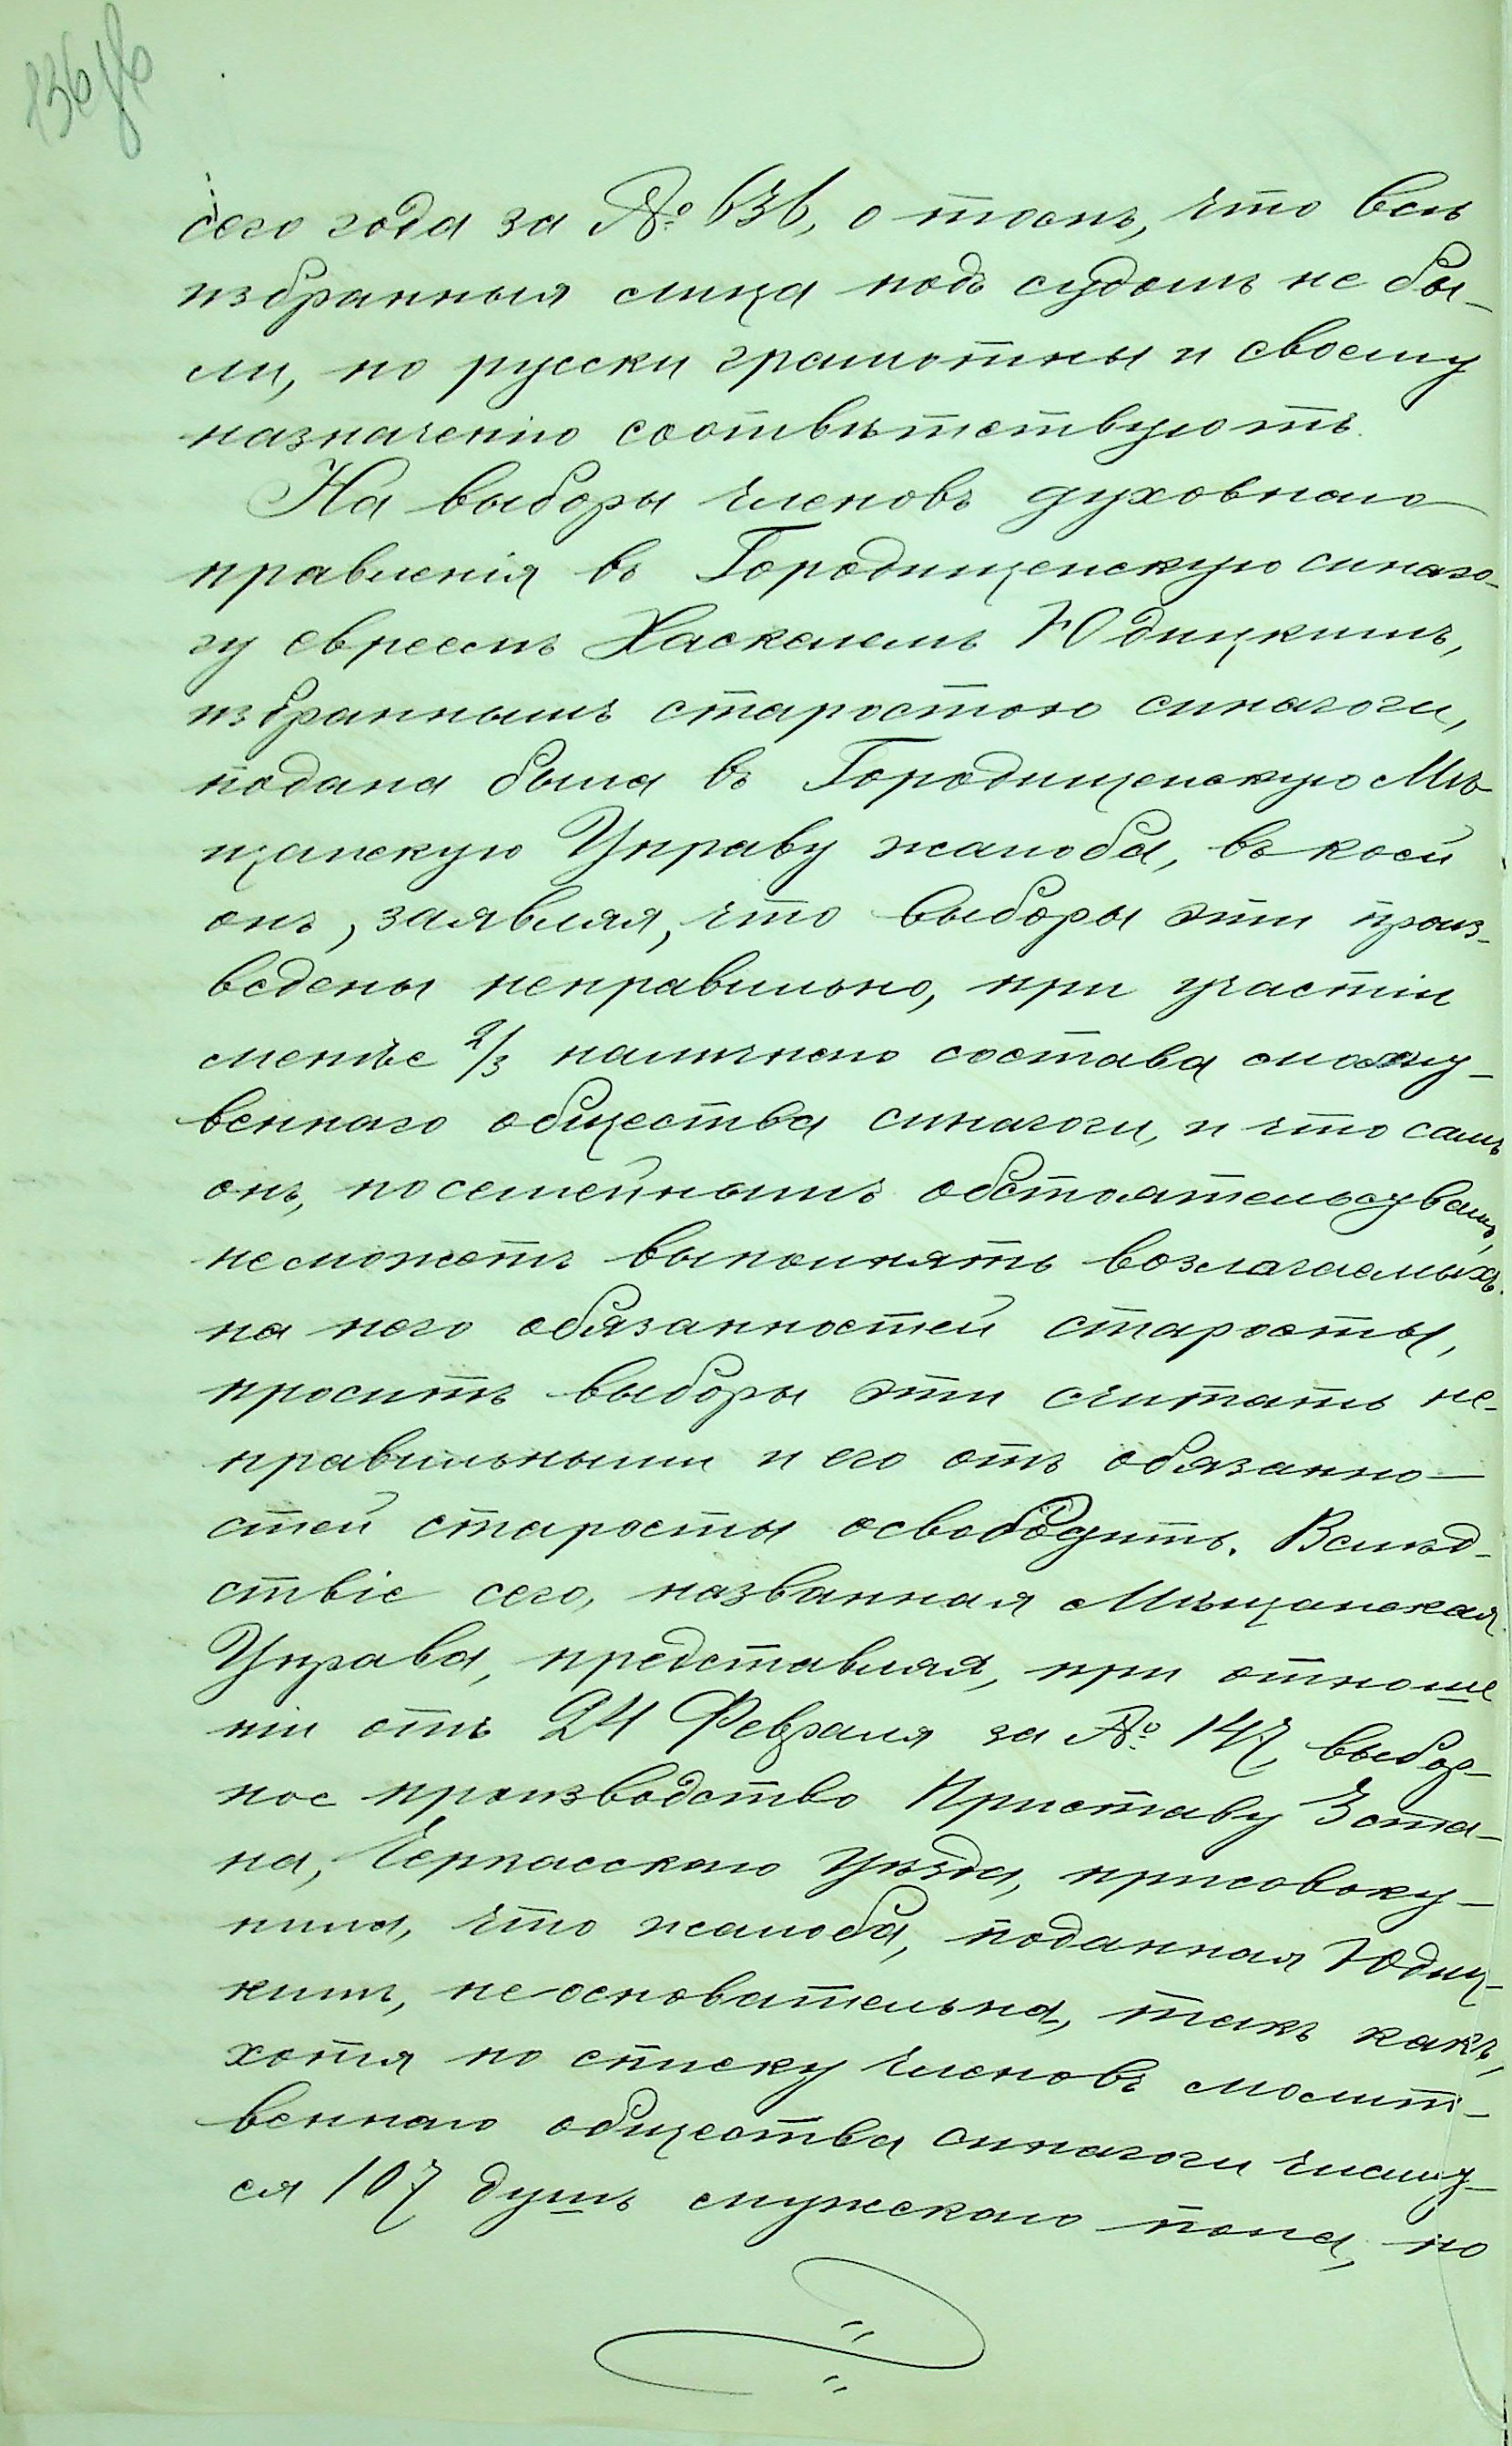 136 об
сего года за № 636, о томъ, что всѣ
избранныя лица подъ судомъ не бы-
ли, по русски грамотны и своему
назначенію соотвѣтствуютъ.
На выборы членовъ духовнаго
правленія въ Городищенскую синаго-
гу евреемъ Хаскелемъ Юдицкимъ,
избраннымъ старостою синагоги,
подана была въ Городищенскую Мѣ-
щанскую Управу жалоба, въ коей
онъ, заявляя, что выборы эти произ-
ведены неправильно, при участіи
менѣе 2/3 наличнаго состава молит-
веннаго общества синагоги, и что самъ
онъ, по семейнымъ обстоятельствамъ,
не можетъ выполнять возлагаемыхъ
на него обязанностей старосты,
проситъ выборы эти считать не-
правильными и его отъ обязанно-
стей старосты освободить. Вслѣд-
ствіе сего, названная Мѣщанская
Управа, представляя, при отноше
ніи отъ 24 Февраля за № 147, выбор-
ное производство Приставу 3 ста-
на, Черкасскаго уѣзда, присовоку-
пила, что жалоба, поданная Юдиц-
кимъ, не основательна, такъ какъ,
хотя по списку членовъ молит-
веннаго общества синагоги числит-
ся 107 душъ мужскаго пола, но